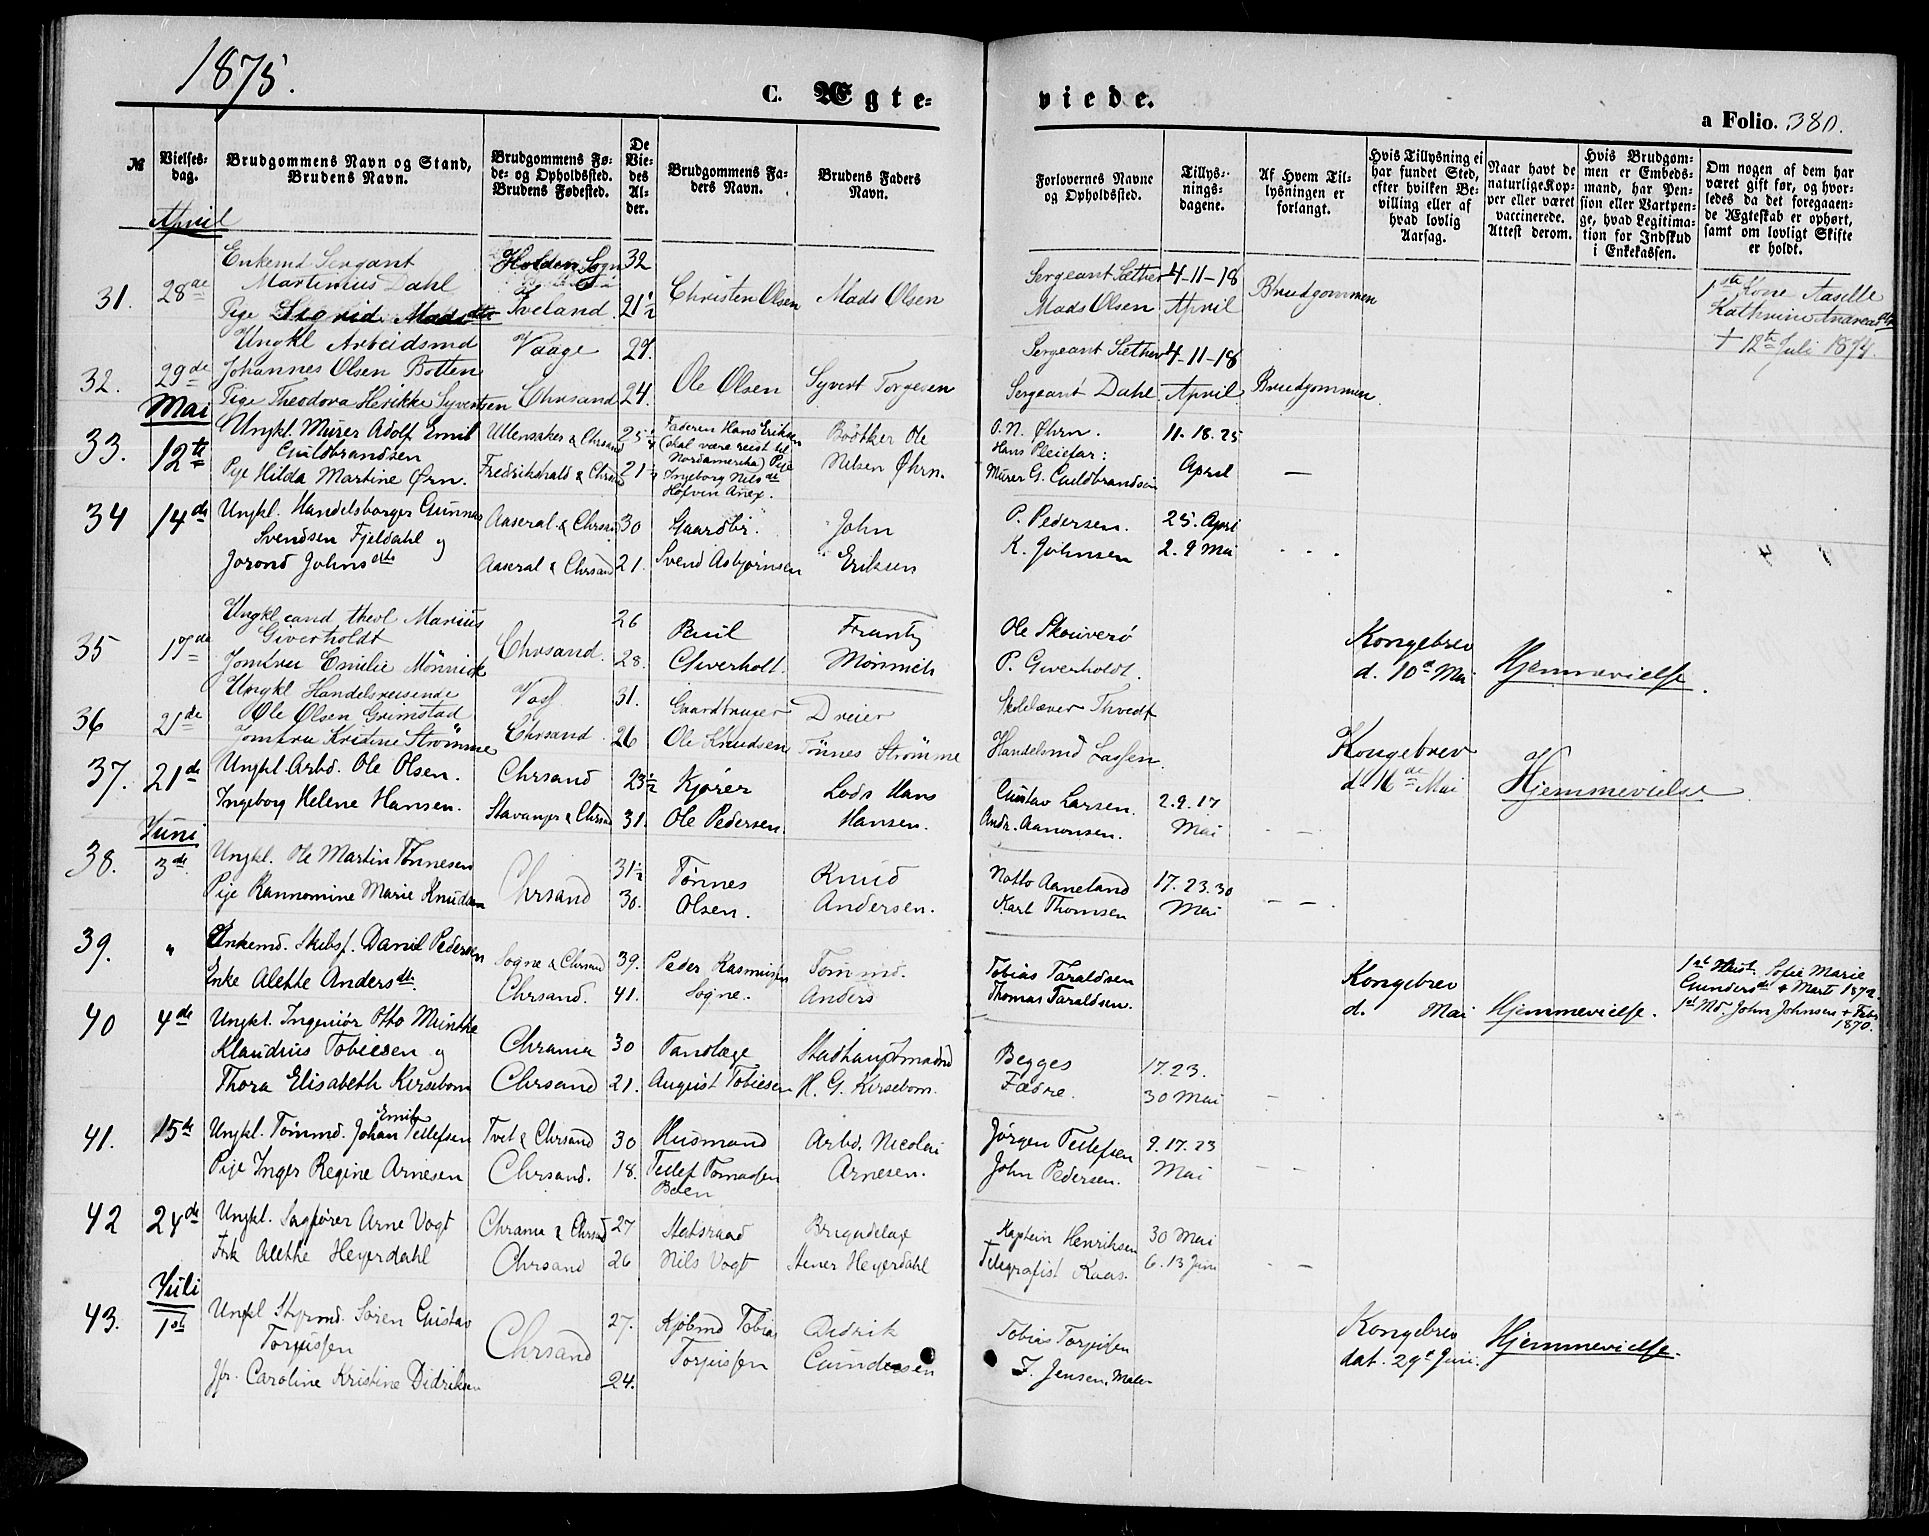 1875.
C. Ægteviede.
a Folio. 380.
№
Vielsesdag.
Brudgommens Navn og Stand, Brudens Navn.
Brudgommens Føde- og Opholdssted. Brudens Fødested.
De Viedes Alder.
Brudgommens Faders Navn.
Brudens Faders Navn.
Forlovernes Navne og Opholdssted.
Tillysningsdagene.
Af Hvem Tillysningen er forlangt.
Hvis Tillysning ei har fundet Sted, efter hvilken Bevilling eller af hvad lovlig Aarsag.
Naar havt de naturlige Kopper eller været vaccinerede. Attest derom.
Hvis Brudgommen er Embedsmand, har Pension eller Vartpenge, hvad Legitimation for Indskud i Enkekassen.
Om nogen af dem har været gift før, og hvorledes da det foregaaende Ægteskab er ophørt, samt om lovligt Skifte er holdt.
April
31. 28de Enkemd Sergant Martinius Dahl Holden Sogn 32 Christen Olsen Mads Olsen Sergeant Sæther 4-11-18 Brudgommen 1ste Kone Aaselle
Pige Sigrid Madsdtr Iveland 21½ Mads Olsen April Kathrine Andreasdtr
† 12te Juli 1874.
32. 29de Ungkl Arbeidsmd Johannes Olsen Botten Vaage 29. Ole Olsen Syvert Torgesen Sergeant Sæther 4-11-18 Brudgommen
Pige Theodora Henrikke Syvertsen Chrsand 24. Sergeant Dahl April
Mai
33. 12te Ungkl. Murer Adolf Emil Guldbrandsen Ullensaker & Chrsand 25¼ Faderen Hans Eriksen (skal være reist til Nordamerika) Pige Ingeborg Nilsdtr Hofvin Anex. Bødtker Ole Nilsen Øhrn. O. N. Øhrn. 11. 18. 25
Pige Hilda Martine Ørn. Fredrikshald & Chrsand 21½ Hans Pleiefar: Murer G. Guldbrandsen April —
34 14de Ungkl. Handelsborger Gunnar Svendsen Fjeldahl og Aaseral & Chrsand 30 Gaardbr. John P. Pedersen. 25. April
Jorond Johnsdtr Aaseral & Chrsand 21. Svend Asbjørnsen Eriksen K. Johnsen 2. 9 Mai
35 17de Ungkl cand theol Marius Giverholdt Chrsand. 26 Giverholt. Frantz Ole Skouverö Kongebrev
Jomfru Emilie Mönnich 28. Mönnich P. Giverholdt. d. 10de Mai Hjemmevielse.
36 21de Ungkl Handelsreisende Ole Olsen Grimstad Voss 31. Gaardbruger Dreier Skolelærer Thvedt Kongebrev
Jomfru Kristine Strömme Chrsand. 26 Ole Knudsen Tönnes Strömme Handelsmd Lassen. d. 16de Mai Hjemmevielse
37. 21de Ungkl. Arbd. Ole Olsen. Chrsand 23½ Kjører Lods Hans Gustav Larsen. 2. 9. 17
Ingeborg Helene Hansen. Stavanger & Chrsand 31. Ole Pedersen. Hansen. Andr. Aanonsen. Mai
Juni
38. 3de Ungkl. Ole Martin Tønnesen Chrsand 31½ Tønnes Knud Notto Aaneland 17. 23. 30
Pige Rannomine Marie Knudsen 30. Olsen. Andersen. Karl Thomsen Mai
39. " Enkemd. Skibsf. Daniel Pedersen Sogne & Chrsand 39. Peder Rasmussen Tømmd. Tobias Taraldsen Kongebrev 1st Hust. Sofie Marie
Enke Alethe Andersdtr. Chrsand. 41. Sogne. Anders Thomas Taraldsen. d. Mai Hjemmevielse. Gundersdtr + Mart 1872.
1st Md. John Johnsen + Febr 1870.
40 4de Ungkl. Ingeniør Otto Munthe Klaudius Tobiesen og Chrania 30 Tandlæge Stadhauptmand Begges 17. 23.
Thora Elisabeth Kirsebom Chrsand 21. August Tobiesen H. G. Kirsebom. Fædre. 30 Mai
41. 15de Ungkl. Tømmd. Johan Emil Tellefsen Tvet & Chrsand 30 Husmand Arbd. Nicolai Jørgen Tellefsen 9. 17. 23
Pige Inger Regine Arnesen Chrsand. 18. Tellef Tomassen Boen Arnesen. John Pedersen. Mai
42 24de Ungkl. Sagfører Arne Vogt Chrania & Chrsand 27 Statsraad Brigadelæge Kaptein Henriksen 30 Mai
Frk Alethe Heyerdahl Chrsand 26 Nils Vogt Stener Heyerdahl Telegrafist Kaas. 6. 13 Juni
Juli
43. 1st Ungkl Styrmd. Søren Gustav Torjusen Chrsand 27. Kjøbmd Tobias Didrik Tobias Torjusen Kongebrev
Jfr. Caroline Kristine Didriksen 24. Torjussen Gundersen J. Jensen, Maler dat. 29de Juni. Hjemmevielse.